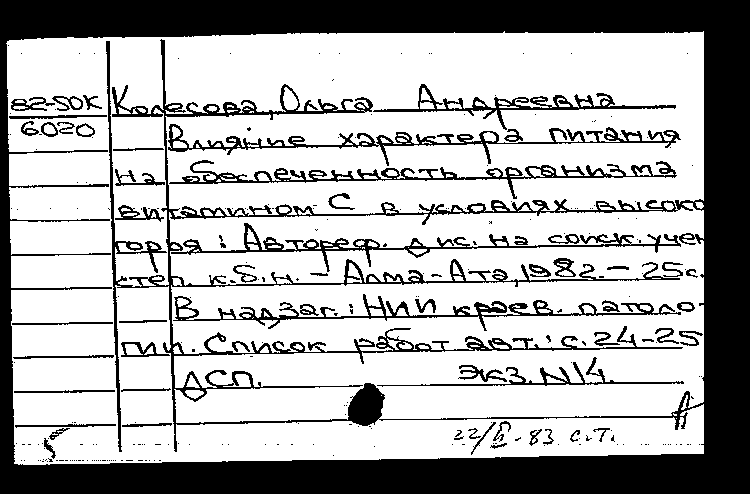 82-50К Колесова, Ольга Андреевна
6020
Влияние характера питания
на обеспеченность организма
витамином С в условиях высоко
горья : Автореф. дис. на соиск. учен
степ. к.б.н. – Алма-Ата, 1982. – 25с.
В надзаг.: НИИ краев. патоло-
гии. Список работ авт.: с. 24-25
ДСП. Экз. N14.
А
5 22/VI-83 с.т.